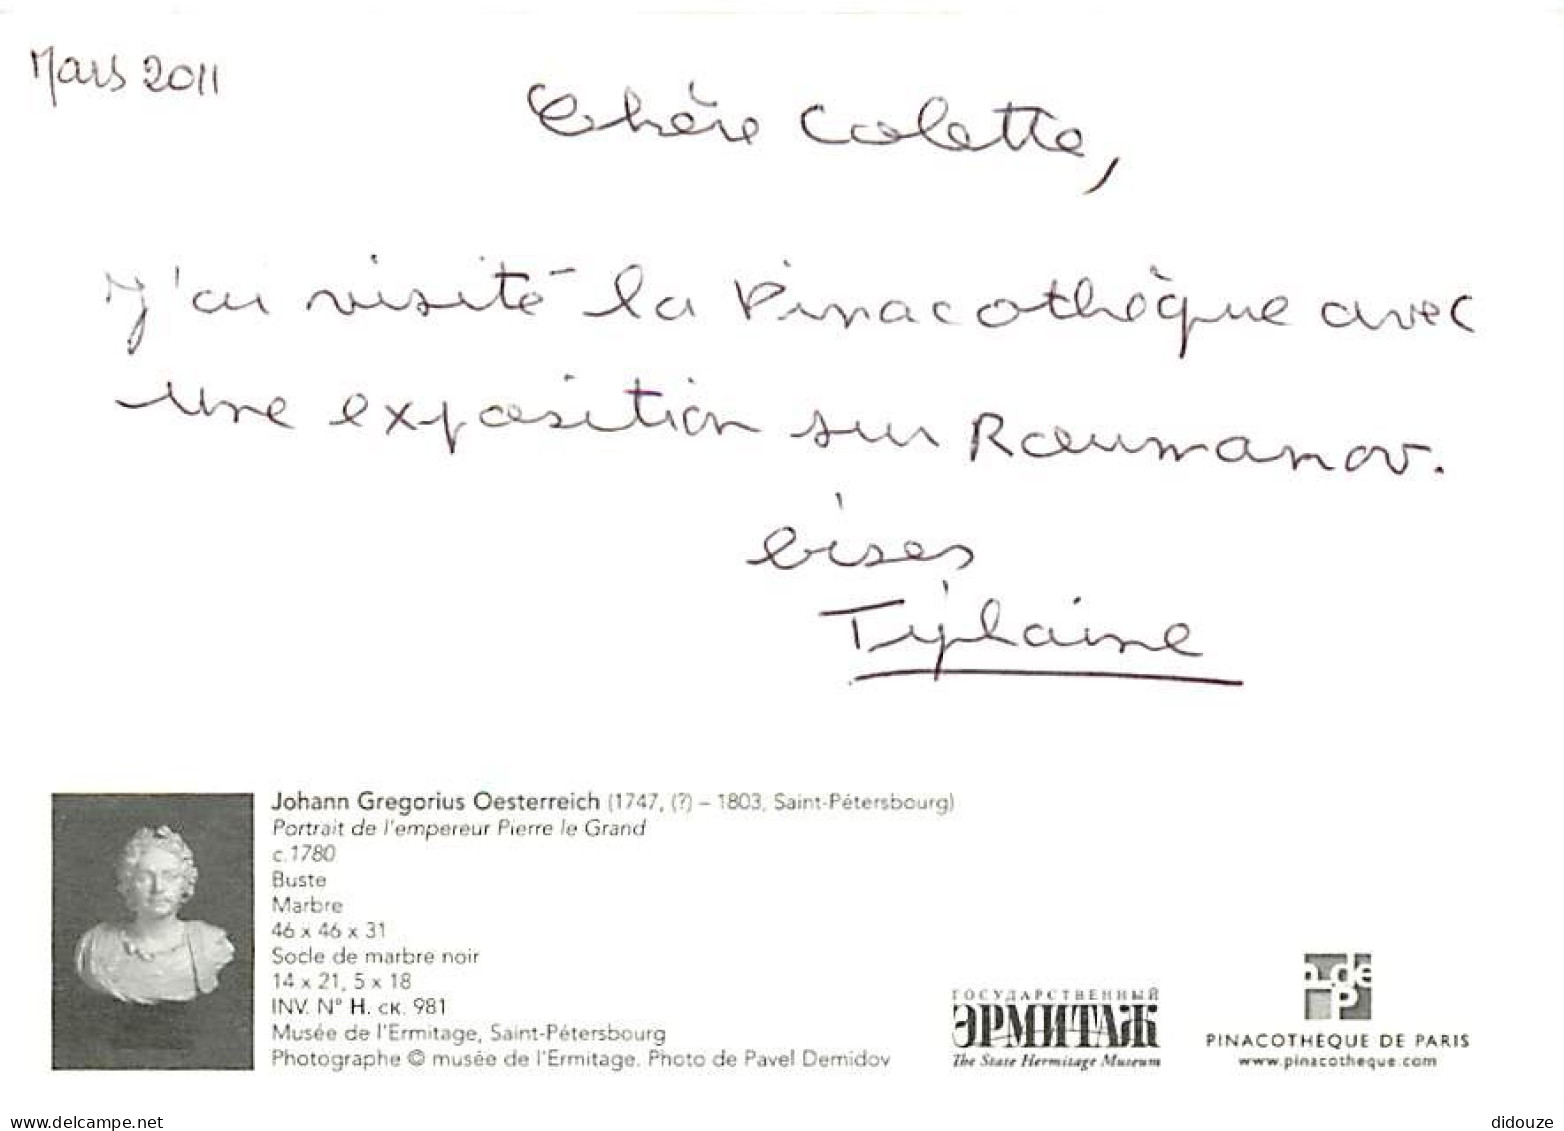 Mars 2011
Chère Colette,
J'ai visité la Pinacothèque avec
une exposition sur Roumanov.
bises
Johann Gregorius Oesterreich (1747, (?) – 1803, Saint-Pétersbourg)
Portrait de l'empereur Pierre le Grand
c.1780
Buste
Marbre
46 x 46 x 31
Socle de marbre noir
14 x 21, 5 x 18
INV. N° H. ск. 981
Musée de l'Ermitage, Saint-Pétersbourg
Photographe © musée de l'Ermitage. Photo de Pavel Demidov
ГОСУДАРСТВЕННЫЙ
ЭРМИТАЖ
The State Hermitage Museum
PINACOTHÈQUE DE PARIS
www.pinacotheque.com
delcampe.net
didouze